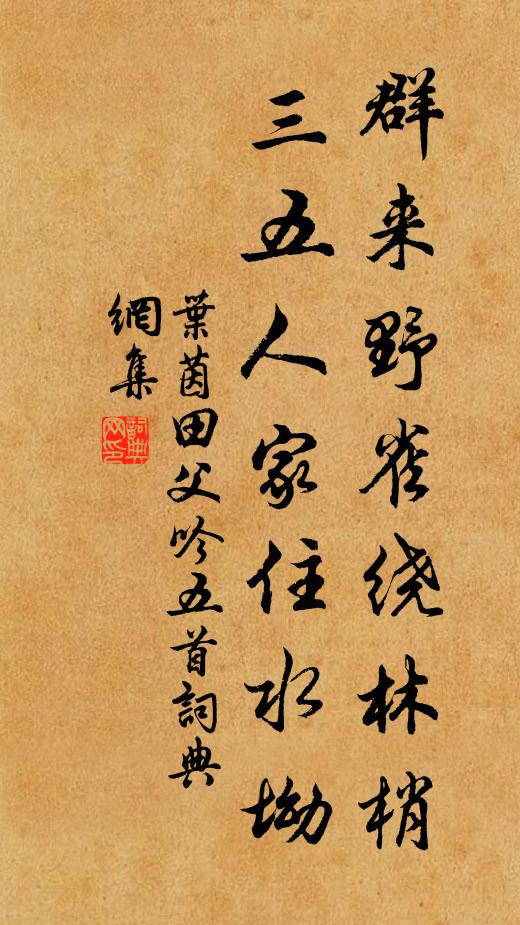 群来野雀绕林梢
三五人家住水坳
葉茵田父吟五首詞典
網集
詞典
网印